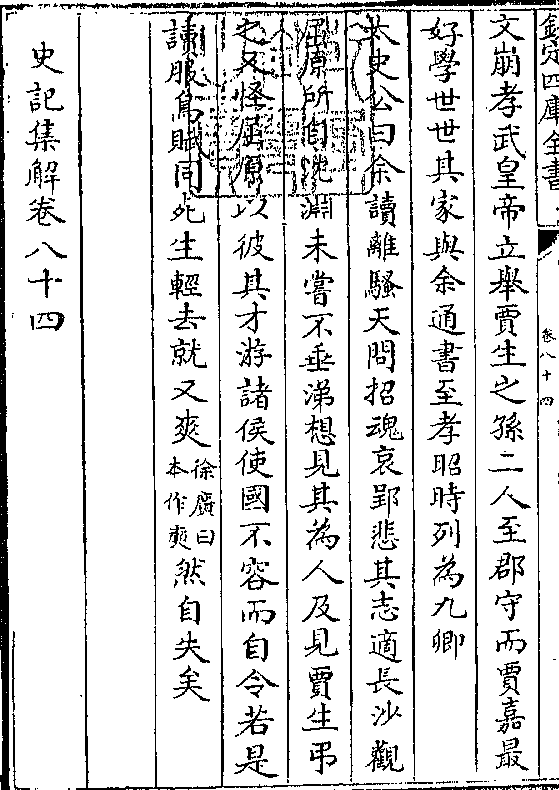 欽定四庫全書
卷八十四
文崩孝武皇帝立舉賈生之孫二人至郡守而賈嘉最
好學世世其家與余通書至孝昭時列為九卿
太史公曰余讀離騷天問招魂哀郢悲其志適長沙觀
屈原所自沈淵未嘗不垂涕想見其為人及見賈生弔
之又怪屈原以彼其才游諸侯使國不容而自令若是
讀服鳥賦同死生輕去就又爽徐廣曰本作奭然自失矣
史記集解卷八十四